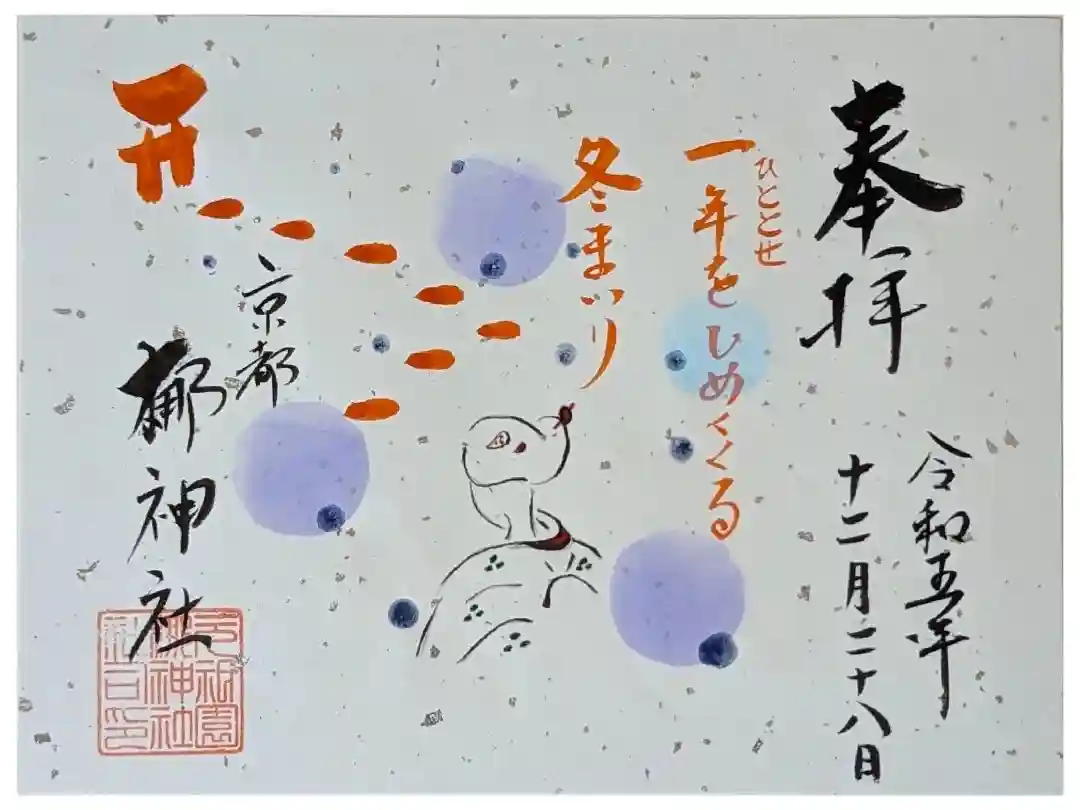 奉拝
令和五年
十二月二十八日
ひととせ
一年をしめくくる
冬まいり
京都
梛神社
元祇園
梛神社